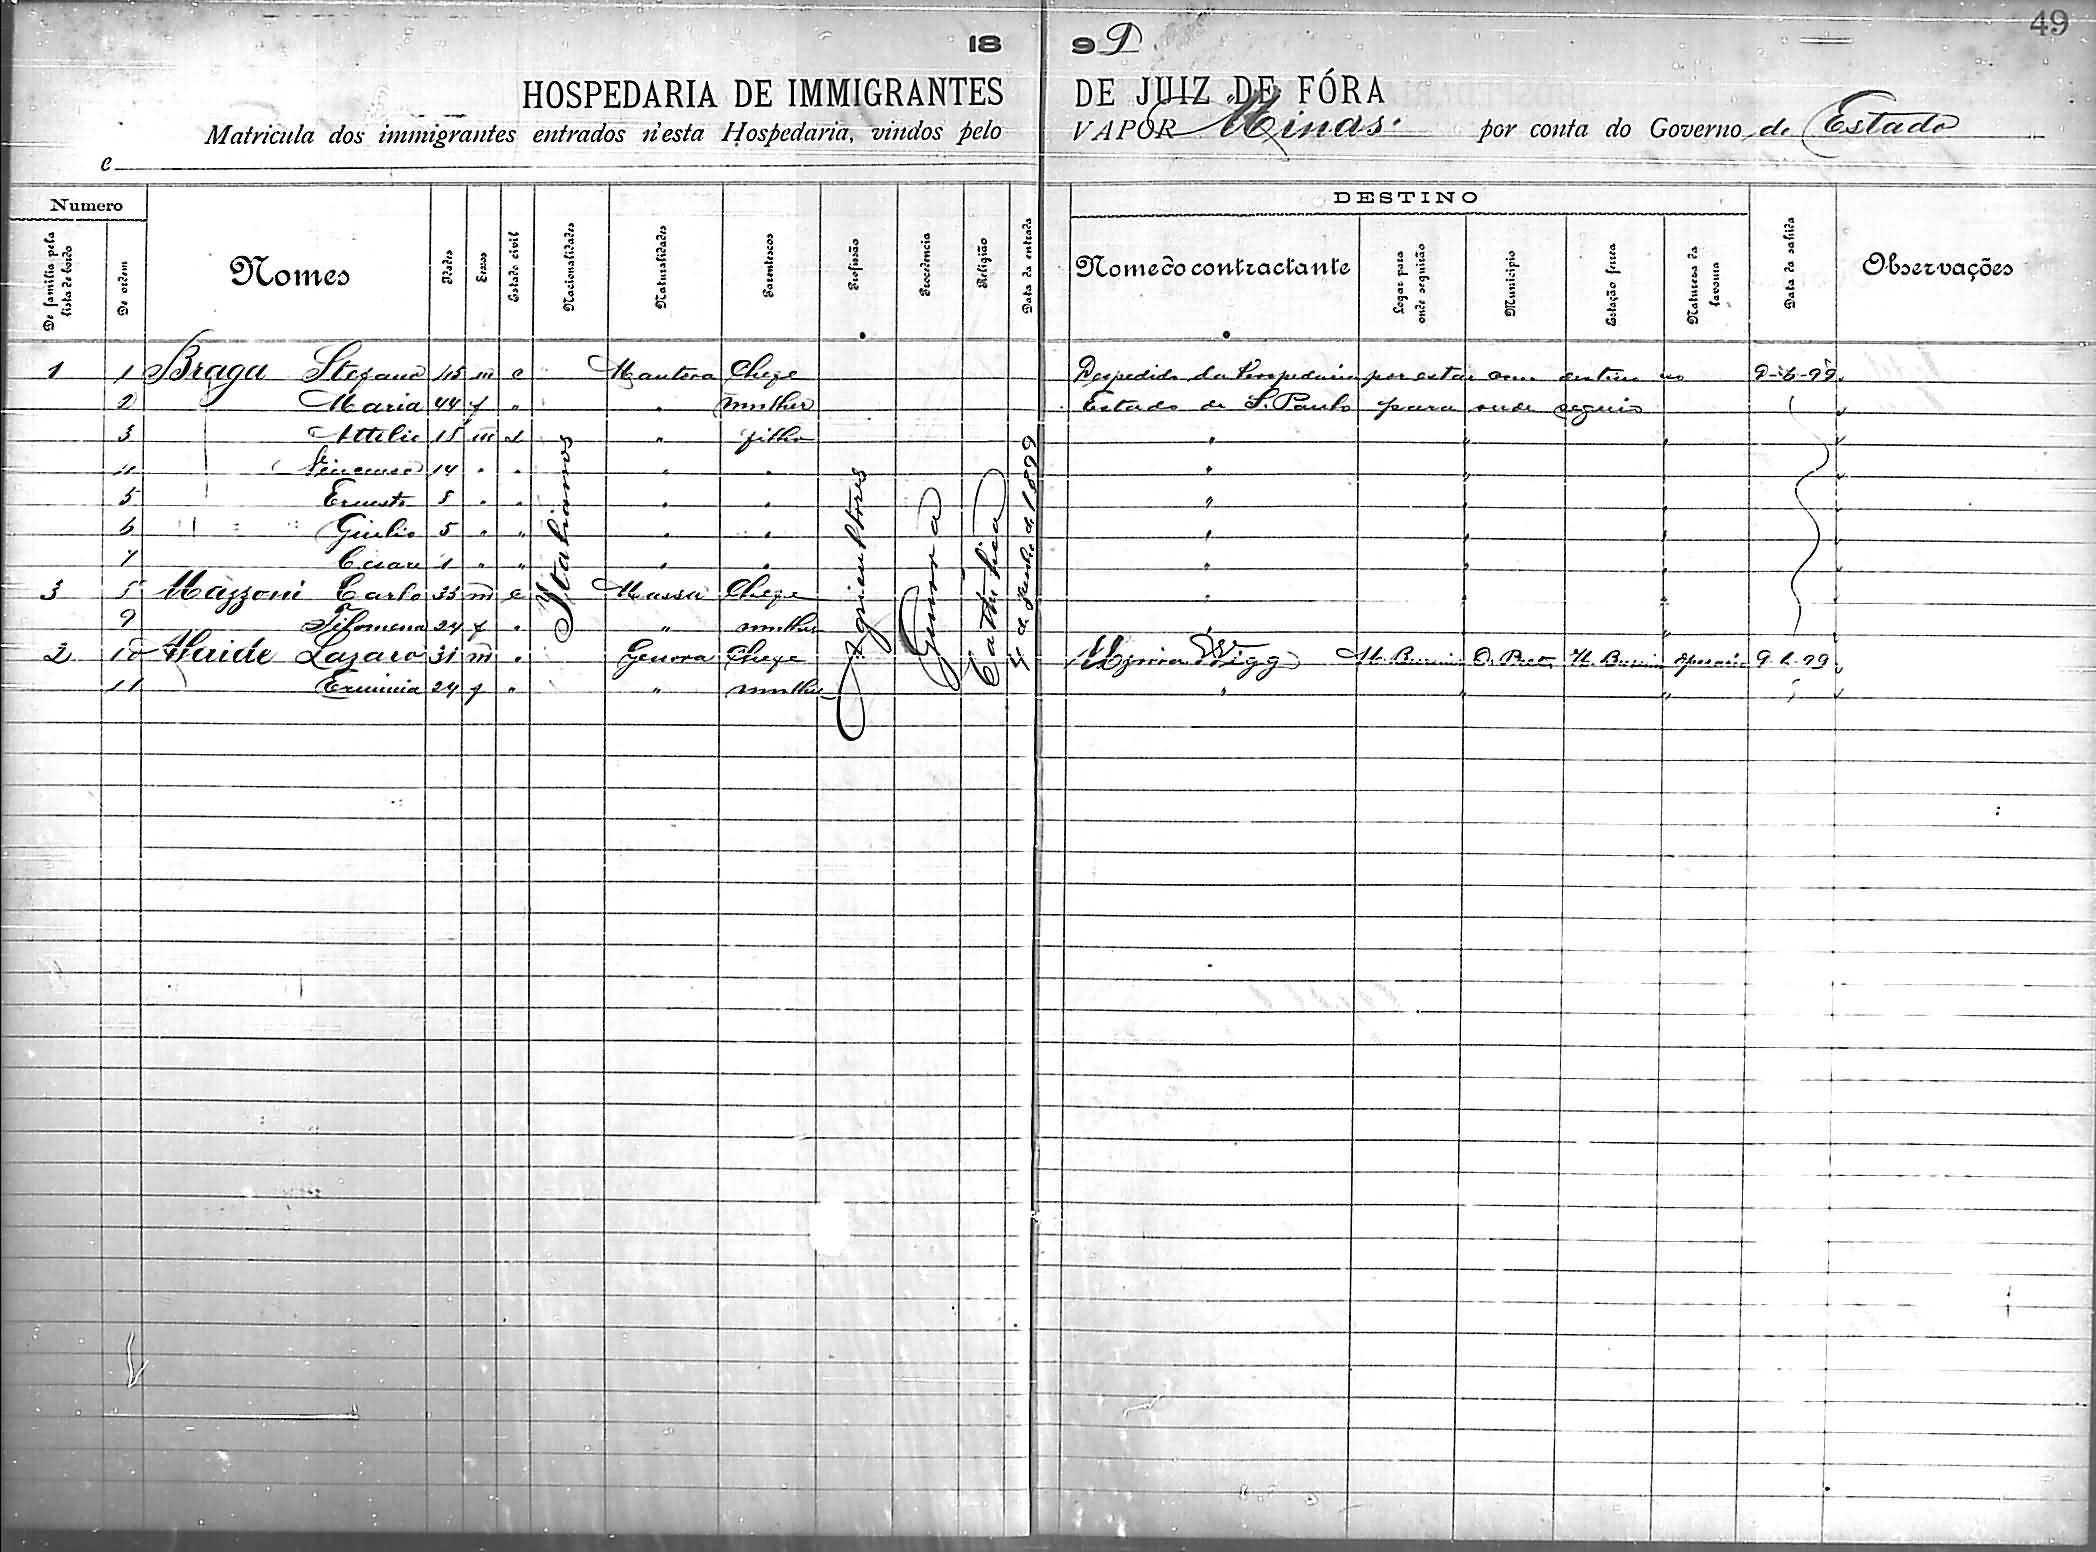 49
18 99
HOSPEDARIA DE IMMIGRANTES DE JUIZ DE FÓRA
Matricula dos immigrantes entrados n'esta Hospedaria, vindos pelo VAPOR Minas por conta do Governo do Estado
e
Numero DESTINO
De familia pela lista de bordo De ordem Nomes Idades Sexos Estado civil Nacionalidades Naturalidades Parentescos Profissão Procedencia Religião Data da entrada Nome do contractante Logar para onde seguirão Municipio Estação ferrea Natureza da lavoura Data da sahida Observações
1 1 Braga Stefano 45 m c Mantova Chefe Despedido da Hospedaria por estar com destino ao 9-6-99
2 Maria 44 f " " mulher Estado de S. Paulo para onde seguio
3 Attilio 15 m s " filho " " "
4 14 " " " " " " "
5 Ernesto 8 " " " " " " "
6 Giulio 5 " " " " " " "
7 Cesare 1 " " " " " " "
3 8 Mazzoni Carlo 35 m c Massa Chefe " " "
9 Filomena 24 f " " mulher " " "
2 10 Lazaro 31 m " Genova Chefe Wigg O. Preto 9-6-99
11 Erminia 24 f " " mulher " " "
Italianos
Agricultores
Genova
Catholica
de Junho de 1899